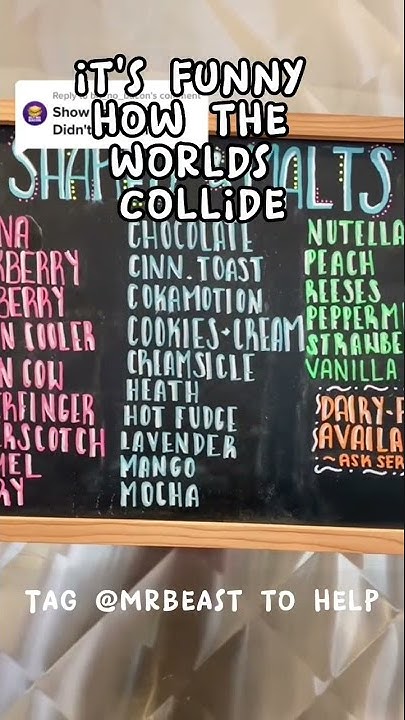 iT'S FUNNY
HOW THE
WORLDS
COLLiDE
Reply to
comment
Show
Didn't
MALTS
NA
BERRY
BERRY
N COOLER
N COW
RFINGER
RSCOTCH
MEL
RY
CHOCOLATE
CINN. TOAST
COKAMOTION
COOKIES+CREAM
CREAMSICLE
HEATH
HOT FUDGE
LAVENDER
MANGO
MOCHA
NUTELLA
PEACH
REESES
PEPPERMI
STRAWBE
VANILLA
DAIRY-F
AVAILA
~ASK SER
TAG @MRBEAST TO HELP